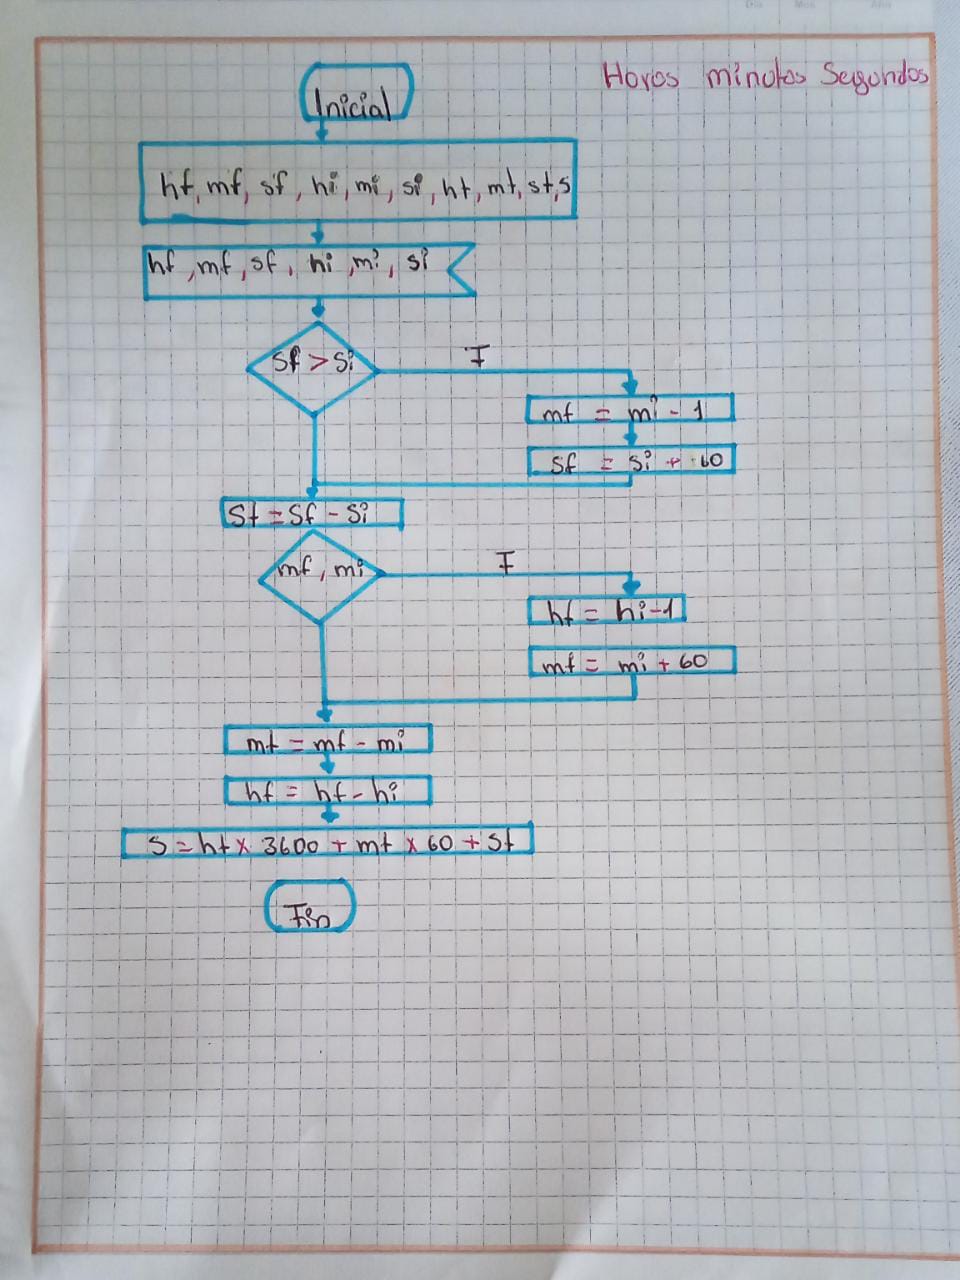 Dia Mes Año
Horas minutos Segundos
Inicial
hf, mf, sf, hi, mi, si, ht, mt, st, s
hf, mf, sf, hi, mi, si
Sf > Si
F
mf = mi - 1
Sf = Si + 60
St = Sf - Si
mf, mi
F
hf = hi - 1
mf = mi + 60
mt = mf - mi
hf = hf - hi
S = ht x 3600 + mt x 60 + St
Fin